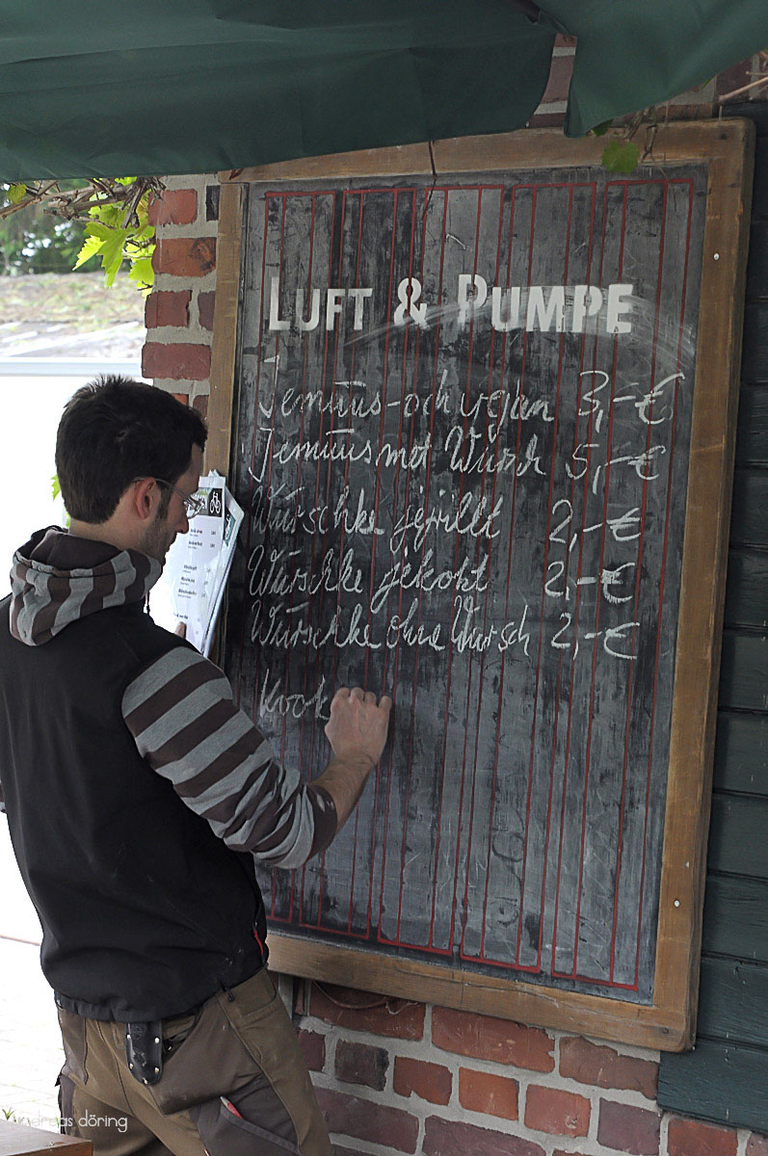 LUFT & PUMPE
Jemüüs-och vejan 3,-€
Jemüüs met Wursch 5,-€
Würschke jejrillt 2,-€
Würschke jekokt 2,-€
Würschke ohne Wursch 2,-€
Kook
andreas döring